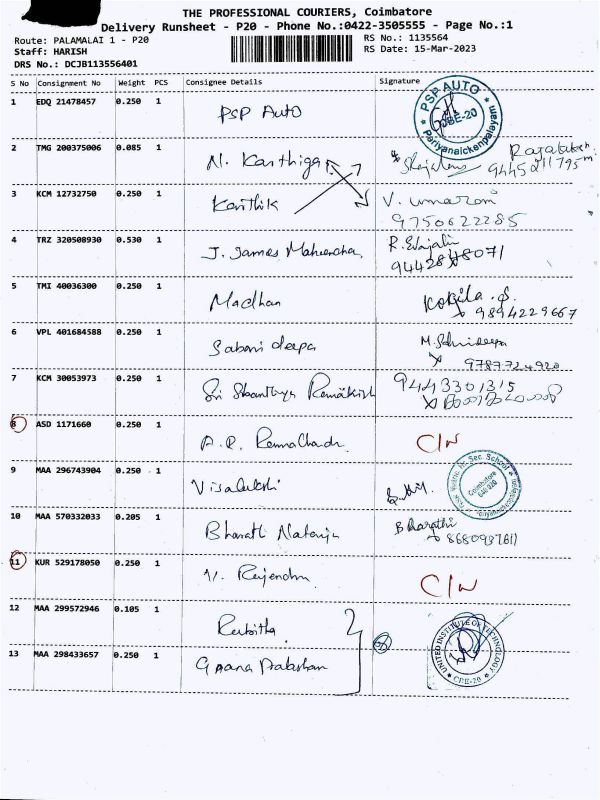 THE PROFESSIONAL COURIERS, Coimbatore
Delivery Runsheet - P20 - Phone No.:0422-3505555 - Page No.:1
Route: PALAMALAI 1 - P20
RS No.: 1135564
Staff: HARISH
RS Date: 15-Mar-2023
DRS No.: DCJB113556401
S No Consignment No Weight PCS Consignee Details Signature
1 EDQ 21478457 0.250 1 PSP Auto
PSP AUTO CBE-20 Periyanaickenpalayam
2 TMG 200375006 0.085 1 N. Karthiga
3 KCM 12732750 0.250 1 Karthik V. umarani
9750622285
4 TRZ 320508930 0.530 1 J. James Mahendra
5 TMI 40036300 0.250 1 Madhan Kokila . S.
9894229667
6 VPL 401684588 0.250 1 Sabari deepa
9787724920
7 KCM 30053973 0.250 1 Sri 9443301315
8 ASD 1171660 0.250 1 A.R. C/N
9 MAA 296743904 0.250 1 Visalakshi
Matric. Hr. Sec. School Coimbatore 641 020
10 MAA 570332033 0.205 1 Bharati Bharathi
11 KUR 529178050 0.250 1 V. Rajendra C/N
12 MAA 299572946 0.105 1
UNITED INSTITUTE OF TECHNOLOGY CBE-20
13 MAA 298433657 0.250 1 Gnana Prakasham